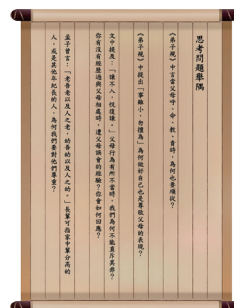 思考問題舉隅
《弟子規》中言當父母呼、命、教、責時，為何也要順從？
《弟子規》中提出「事雖小，勿擅為」為何做好自己也是尊敬父母的表現？
文中提及：「諫不入，悅復諫。」父母行為有所不當時，我們為何不能直斥其非？
你有沒有經歷過與父母相處時，遭父母誤會的經驗？你會如何回應？
孟子曾言：「老吾老以及人之老，幼吾幼以及人之幼。」長輩可指家中輩分高的
人，或是其他年紀長的人，為何我們要對他們尊重？